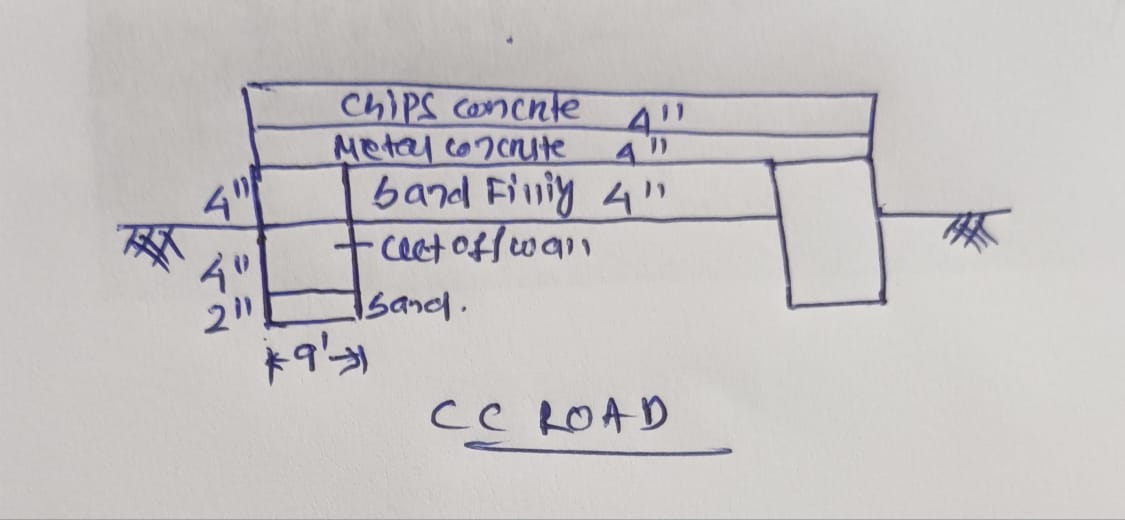 Chips concrite 4"
Metal concrite 4"
4" Sand Filling 4"
4" Cut off/wall
2" Sand.
9'
CC ROAD